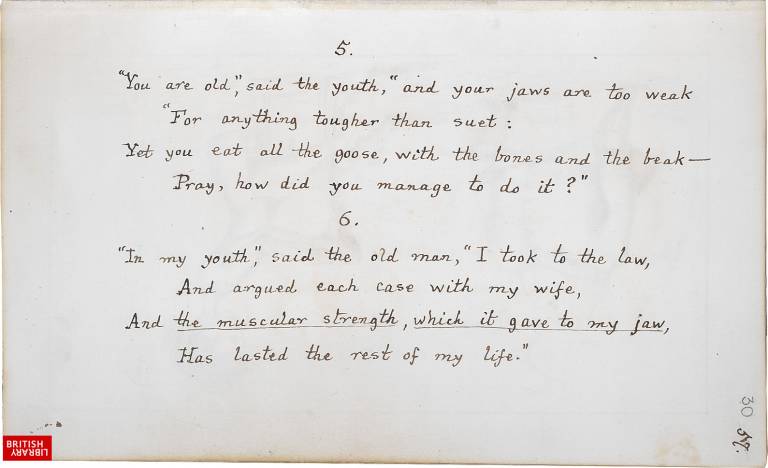 5.
"You are old", said the youth, "and your jaws are too weak
"For anything tougher than suet:
Yet you eat all the goose, with the bones and the beak—
Pray, how did you manage to do it?"
6.
"In my youth", said the old man, "I took to the law,
And argued each case with my wife,
And the muscular strength, which it gave to my jaw,
Has lasted the rest of my life."
30
57.
BRITISH
LIBRARY